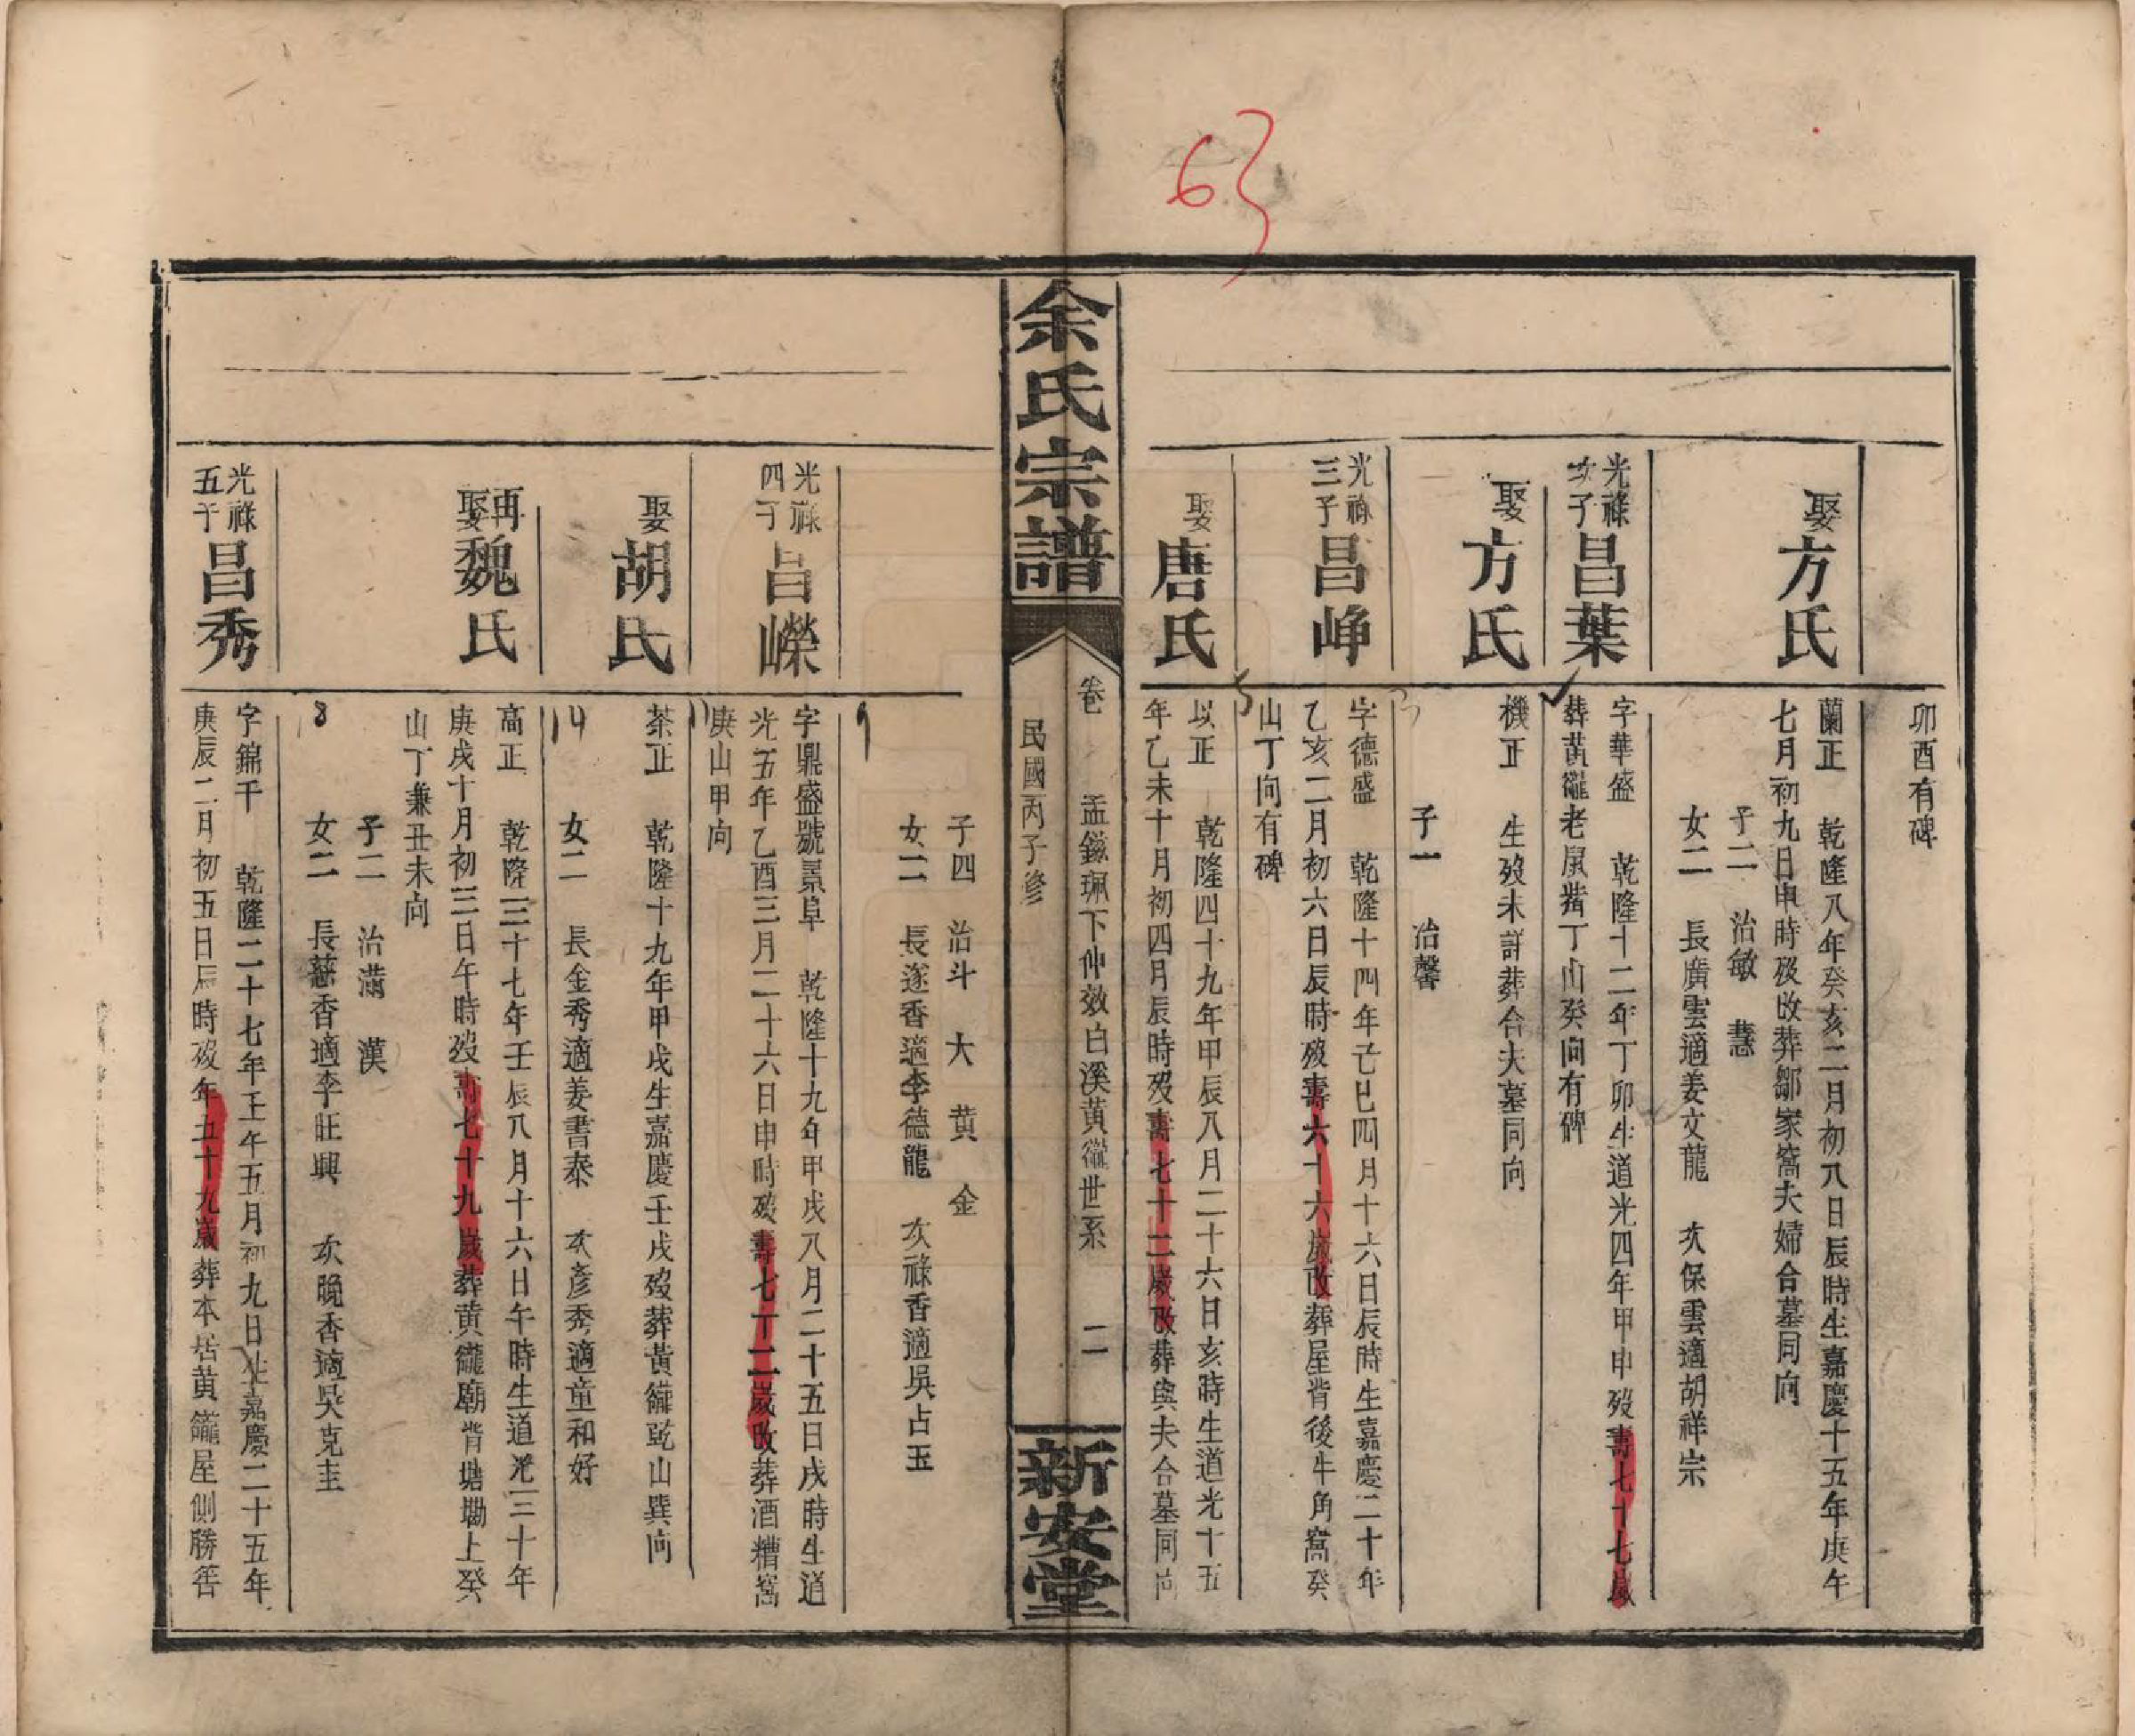 63
卯酉有碑
娶方氏
蘭正 乾隆八年癸亥二月初八日辰時生嘉慶十五年庚午
七月初九日申時歿改葬鄒家窩夫婦合墓同向
子二 治敏 慧
女二 長廣雲適姜文龍 次保雲適胡祥宗
光祿次子昌葉
字華盛 乾隆十二年丁卯生道光四年甲申歿壽七十七歲
葬黃龍老屋背丁山癸向有碑
娶方氏
機正 生歿未詳葬合夫墓同向
子一 治馨
光祿三子昌崢
字德盛 乾隆十四年己巳四月十六日辰時生嘉慶二十年
乙亥二月初六日辰時歿壽六十六歲改葬屋背後牛角窩癸
山丁向有碑
娶唐氏
以正 乾隆四十九年甲辰八月二十六日亥時生道光十五
年乙未十月初四月辰時歿壽七十二歲改葬與夫合墓同向
余氏宗譜
卷 孟鎰珮下仲效白溪黃龍世系 二
民國丙子修
新安堂
子四 治斗 大 黄 金
女二 長逐香適李德龍 次祿香適吳占玉
9
光祿四子昌嶸
字鼎盛號景阜 乾隆十九年甲戌八月二十五日戌時生道
光五年乙酉三月二十六日申時歿壽七十二歲改葬酒糟窩
庚山甲向
11
娶胡氏
茶正 乾隆十九年甲戌生嘉慶壬戌歿葬黃龍乾山巽向
女二 長金秀適姜書泰 次彥秀適童和好
14
再娶魏氏
高正 乾隆三十七年壬辰八月十六日午時生道光三十年
庚戌十月初三日午時歿壽七十九歲葬黄龍廟背塘墈上癸
山丁兼丑未向
子二 治滿 漢
女二 長慈香適李旺興 次晚香適吳克圭
18
光祿五子昌秀
字錦千 乾隆二十七年壬午五月初九日生嘉慶二十五年
庚辰二月初五日辰時歿年五十九歲葬本居黄龍屋側勝筶